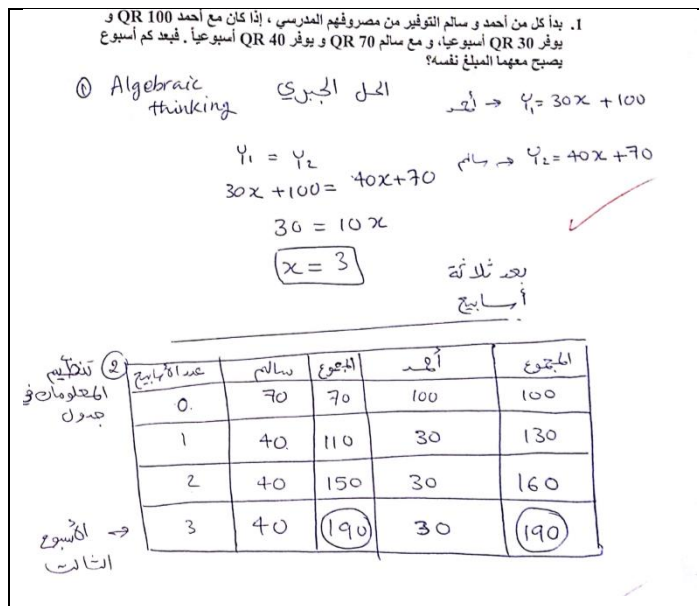 1. بدأ كل من أحمد و سالم التوفير من مصروفهم المدرسي ، إذا كان مع أحمد 100 QR و
يوفر 30 QR أسبوعيا، و مع سالم 70 QR و يوفر 40 QR أسبوعياً . فبعد كم أسبوع
يصبح معهما المبلغ نفسه؟
① Algebraic thinking الحل الجبري
أحمد → Y₁ = 30x + 100
سالم → Y₂ = 40x + 70
Y₁ = Y₂
30x + 100 = 40x + 70
30 = 10x
x = 3
بعد ثلاثة
أسابيع
② تنظيم
المعلومات في
جدول
عدد الأسابيع سالم المجموع أحمد المجموع
0. 70 70 100 100
1 40. 110 30 130
2 40 150 30 160
3 40 190 30 190
الأسبوع →
الثالث